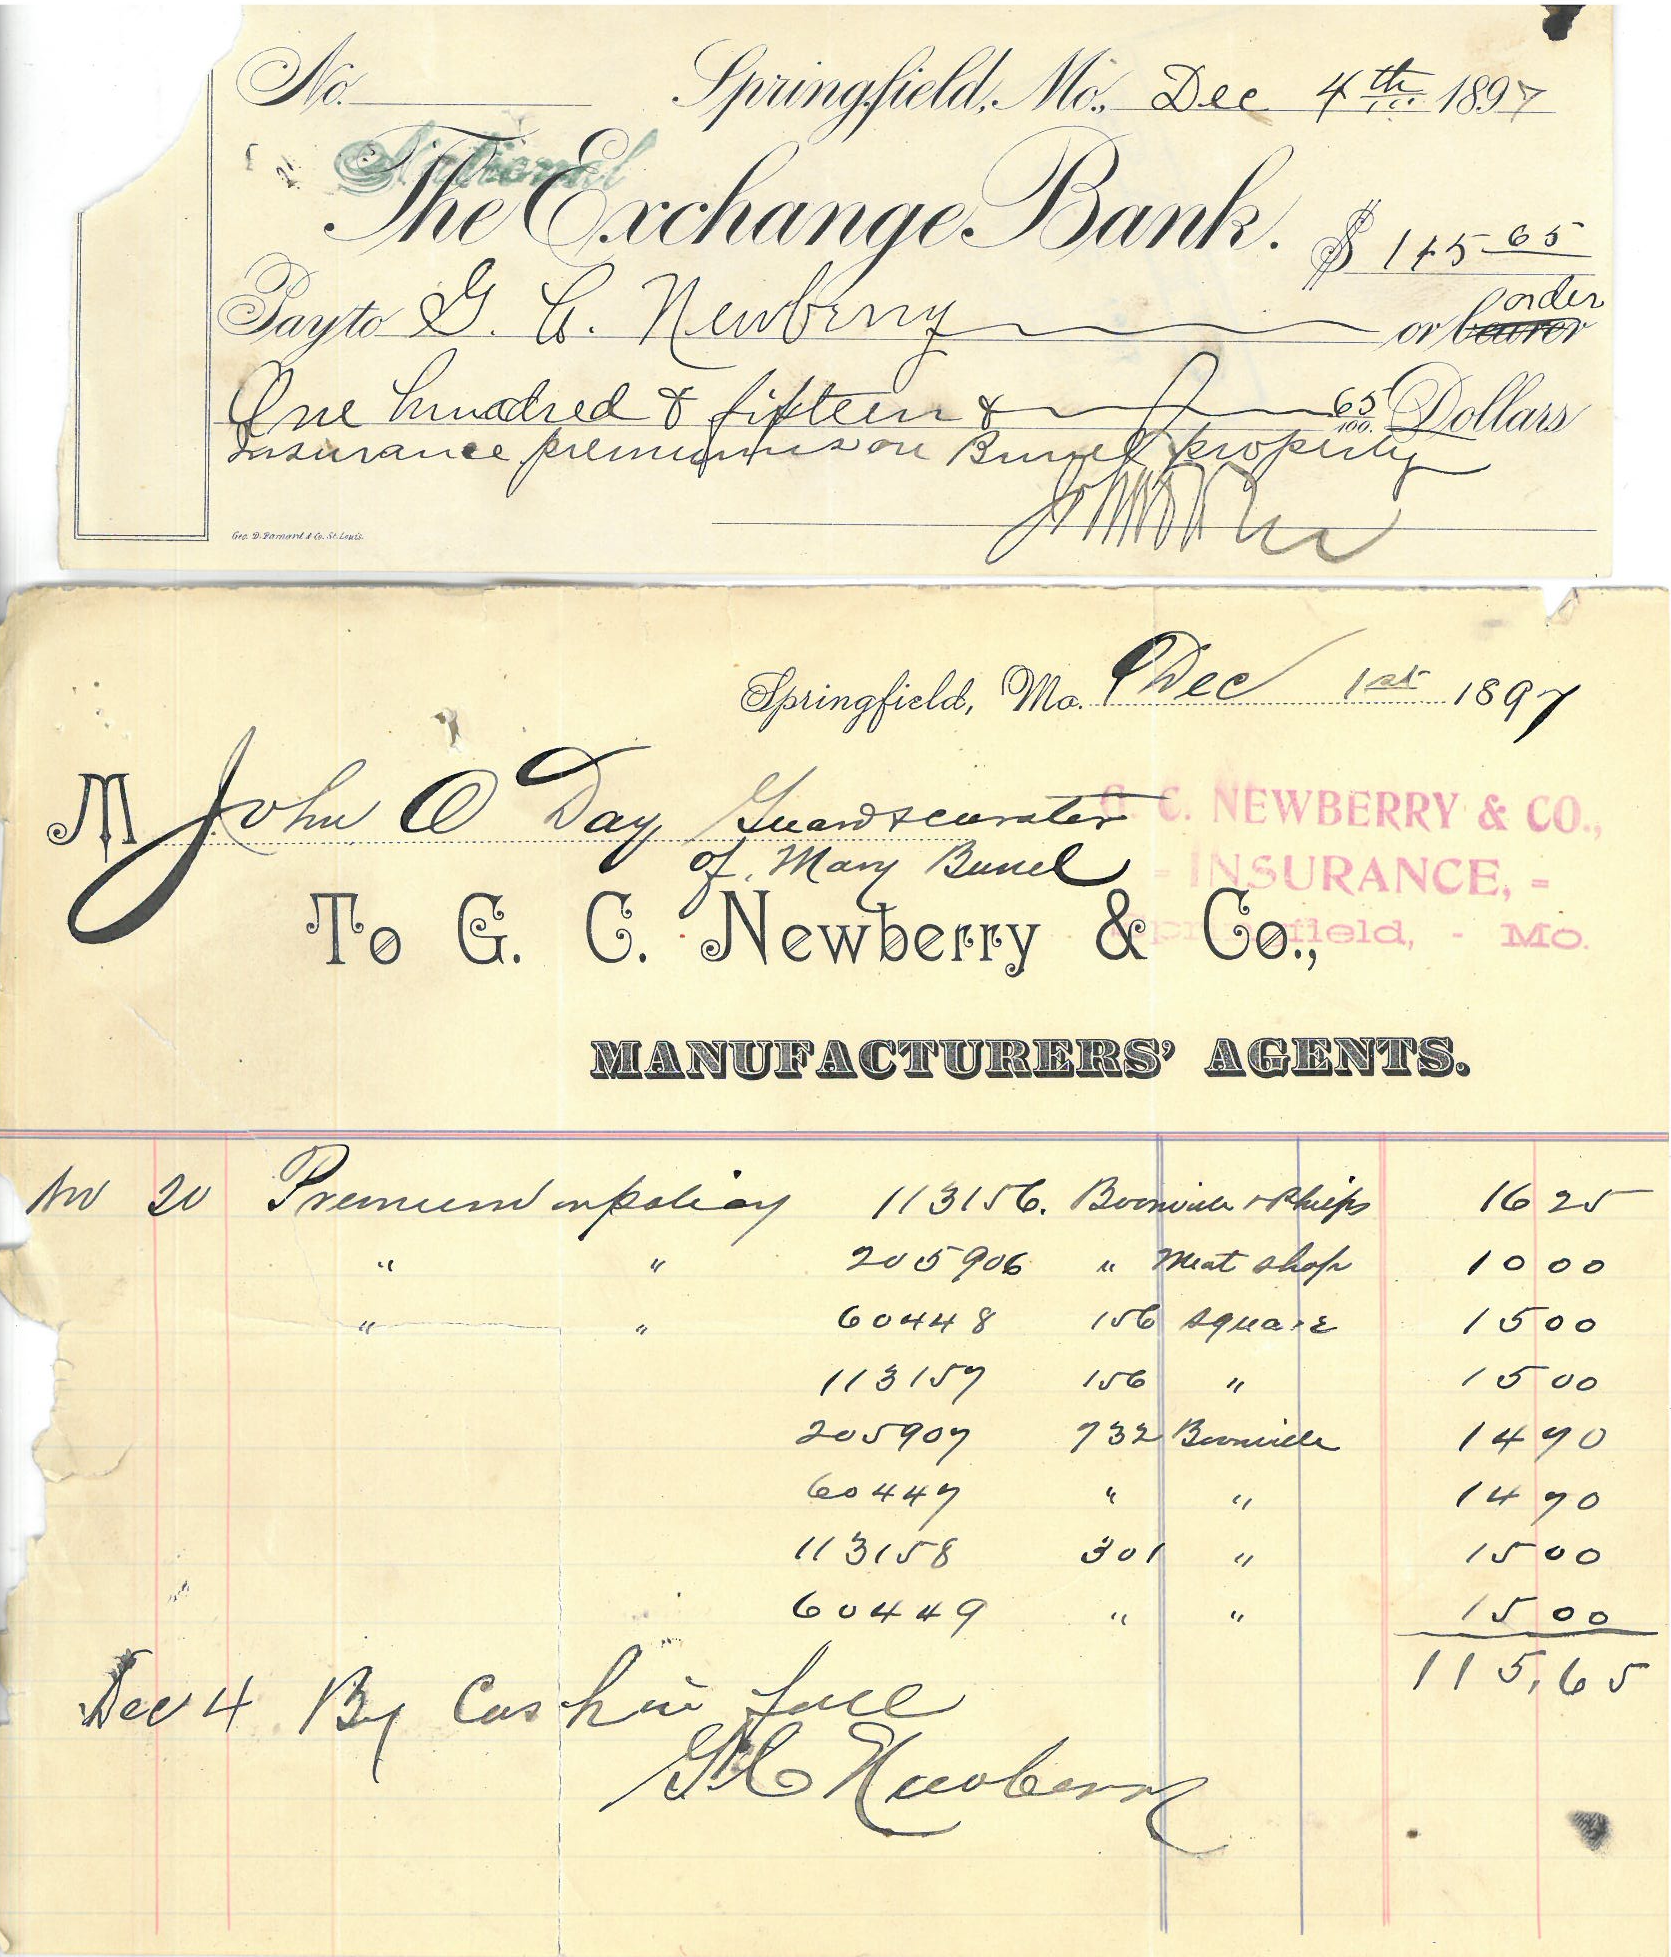 No. Springfield, Mo., Dec 4th 1897
National
The Exchange Bank.
$ 115 65
Pay to G. C. Newberry or bearer order
One hundred & fifteen & 65/100 Dollars
Insurance premiums on Burrel property
Geo. D. Barnard & Co. St. Louis.
Springfield, Mo. Dec 1st 1897
M John O Day Guard & curator
of Mary Burrel
G. C. NEWBERRY & CO.,
- INSURANCE, -
Springfield, - Mo.
To G. C. Newberry & Co.,
MANUFACTURERS' AGENTS.
Nov 20 Premium on policy 113156. Boonville & Phelps 16 25
" " 205906 " Meat shop 10 00
" " 60448 156 square 15 00
113157 156 " 15 00
205907 732 Boonville 14 70
60447 " " 14 70
113158 301 " 15 00
60449 " " 15 00
115,65
Dec 4 By Cash in full
G C Newberry